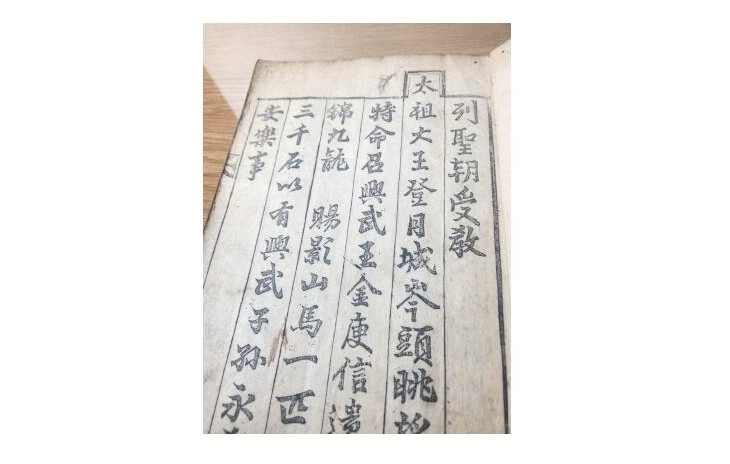 列聖朝受教
太祖大王登月城岑頭眺
特命召興武王金庾信遺
錦九龍 賜影山馬一匹
三千石以有興武子孫永
安樂事